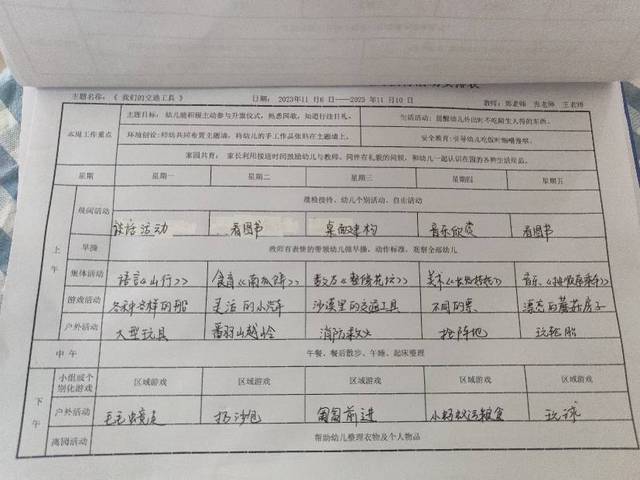 主题名称：《我们的交通工具》 日期：2023年11月6日——2023年11月10日 教师：郑老师 张老师 王老师
本周工作重点
主题目标：幼儿能积极主动参与升旗仪式，熟悉国歌，知道行注目礼。 生活活动：提醒幼儿外出时不吃陌生人给的东西。
环境创设：师幼共同布置主题墙，将幼儿的手工作品张贴在主题墙上。 安全教育：引导幼儿吃饭时细嚼慢咽。
家园共育：家长利用接送时间鼓励幼儿与教师、同伴有礼貌的问候，和幼儿一起认识在园的各种生活用品。
星期 星期一 星期二 星期三 星期四 星期五
上午
晨间活动 晨检接待、幼儿个别活动、自由活动
谈话活动 看图书 桌面建构 音乐欣赏 看图书
早操 教师有表情的带领幼儿做早操，动作标准，观察全部幼儿
集体活动 语言《山行》 食育《南瓜饼》 数方《整理花坛》 美术 音乐
游戏活动 各种各样的船 灵活的小汽车 沙漠里的交通工具 不同的票 漂亮的蘑菇房子
户外活动 大型玩具 翻山越岭 消防救火 抢阵地 玩轮胎
中午 午餐、餐后散步、午睡、起床整理
下午
小组或个别化游戏 区域游戏 区域游戏 区域游戏 区域游戏 区域游戏
户外活动 毛毛虫竞走 扔沙包 匍匐前进 小蚂蚁运粮食 玩球
离园活动 帮助幼儿整理衣物及个人物品